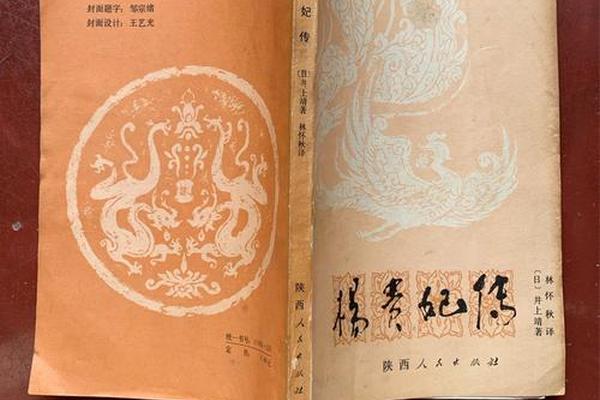 封面题字：邹宗绪
封面设计：王艺光
统一书号：
定价：
妃传
〔日〕井上靖著
林怀秋译
陕西人民出版社
杨贵妃传
〔日〕井上靖著
林怀秋译
陕西人民出版社